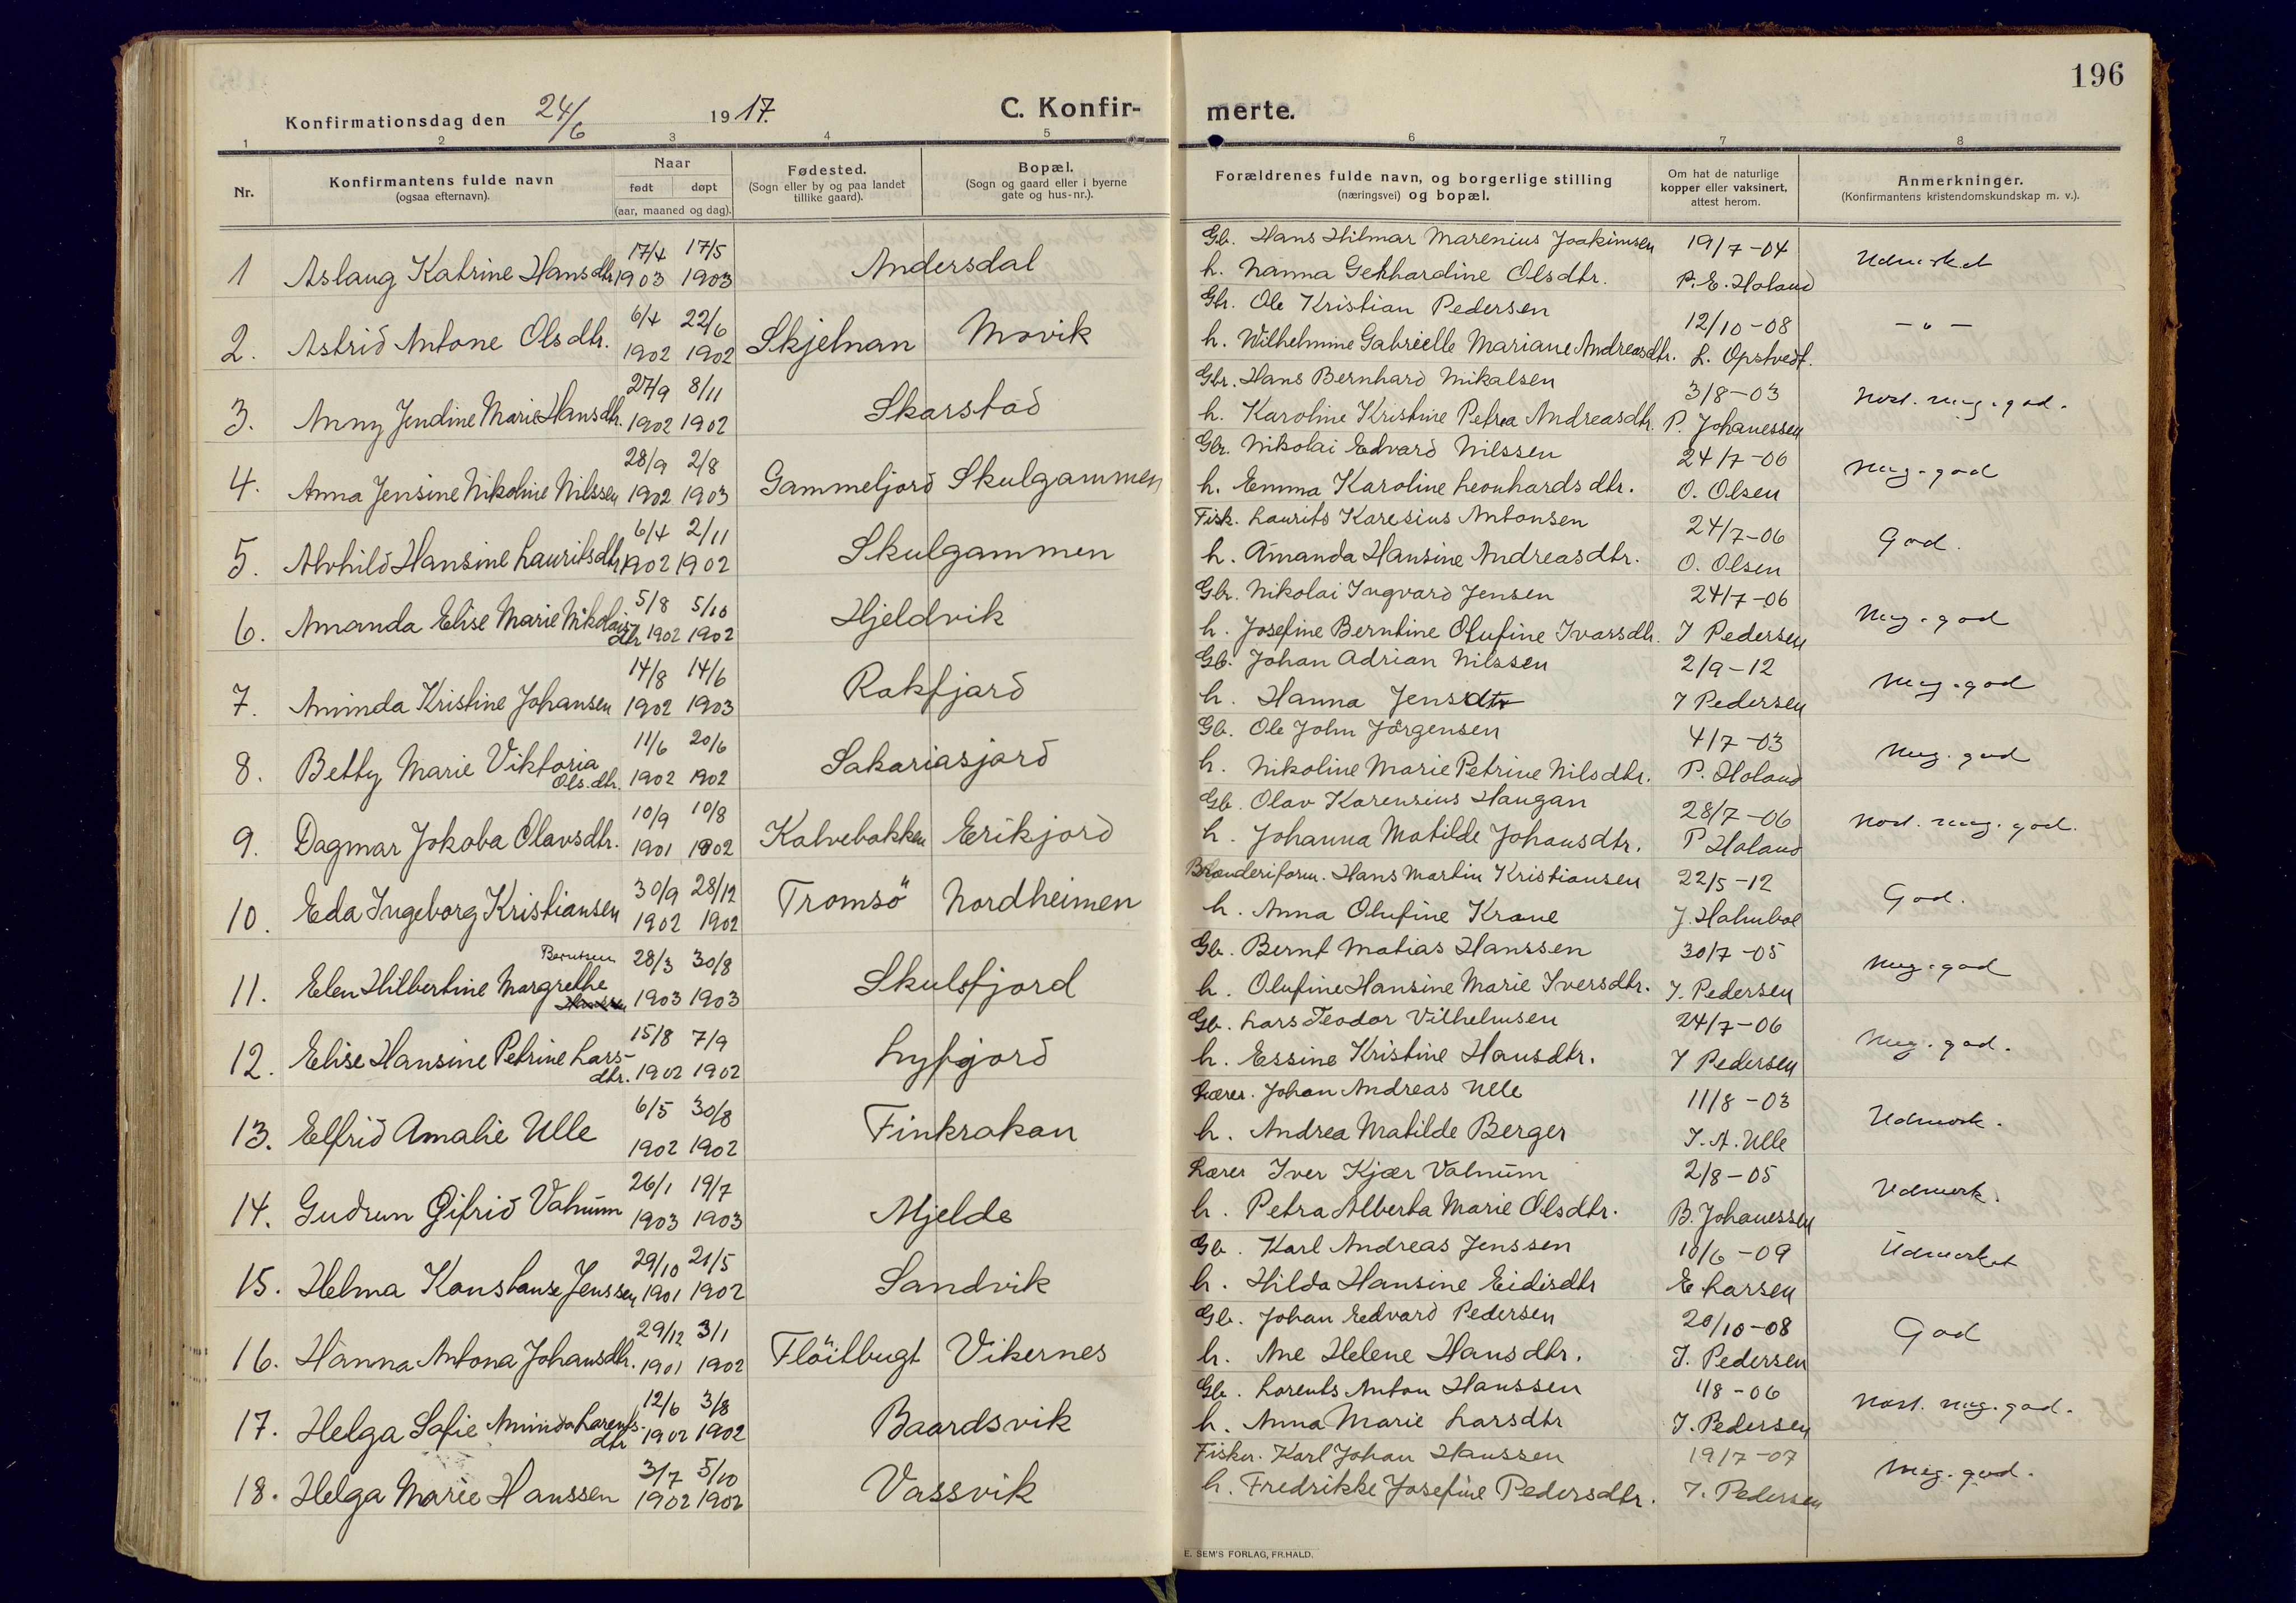 196
Konfirmationsdag den 24/6 1917. C. Konfir-merte.
1 2 3 4 5 6 7 8
Nr.
Konfirmantens fulde navn
(ogsaa efternavn).
Naar
født døpt
(aar, maaned og dag).
Fødested.
(Sogn eller by og paa landet
tillike gaard).
Bopæl.
(Sogn og gaard eller i byerne
gate og hus-nr.).
Forældrenes fulde navn, og borgerlige stilling
(næringsvei) og bopæl.
Om hat de naturlige
kopper eller vaksinert,
attest herom.
Anmerkninger.
(Konfirmantens kristendomskundskap m. v.).
17/4 17/5 Gb. Hans Hilmar Marenius Joakimsen 19/7-04
1 Aslaug Katrine Hansdtr 1903 1903 Andersdal h. Nanna Gerhardine Olsdtr. P. E. Holand Udmerket
6/4 22/6 Gbr. Ole Kristian Pedersen 12/10-08
2. Astrid Antone Olsdtr. 1902 1902 Skjelnan Movik h. Wilhelmine Gabrielle Mariane Andreasdtr. L. Opstvedt. - " -
27/9 8/11 Gbr. Hans Bernhard Mikalsen 3/8-03
3. Anny Jendine Marie Hansdtr. 1902 1902 Skarstad h. Karoline Kristine Petrea Andreasdtr. P. Johanessen Nest. meg. god.
28/9 2/8 Gbr. Nikolai Edvard Nilssen 24/7-06
4. Anna Jensine Nikoline Nilssen 1902 1903 Gammeljord Skulgammen h. Emma Karoline Leonhardsdtr. O. Olsen Meg. god
6/4 2/11 Fisk. Laurits Karesius Antonsen 24/7-06
5. Alvhild Hansine Lauritsdtr 1902 1902 Skulgammen h. Amanda Hansine Andreasdtr. O. Olsen God.
5/8 5/10 Gbr. Nikolai Ingvard Jensen 24/7-06
6. Amanda Elise Marie Nikolais-
dtr 1902 1902 Hjeldvik h. Josefine Berntine Olufine Ivarsdtr. J Pedersen Meg. god
14/8 14/6 Gb. Johan Adrian Nilssen 2/9-12
7. Aminda Kristine Johansen 1902 1903 Rakfjard h. Hanna Jensdtr J Pedersen Meg. god
11/6 20/6 Gb. Ole John Jörgensen 4/7-03
8. Betty Marie Viktoria
Ols.dtr. 1902 1902 Sakariasjard h. Nikoline Marie Petrine Nilsdtr. P. Holand Meg. god
10/9 10/8 Gb. Olav Karensius Haugan 28/7-06
9. Dagmar Jakoba Olavsdtr. 1901 1902 Kalvebakken Erikjord h. Johanna Matilde Johansdtr. P Holand Nest. meg. god.
30/9 28/12 Brænderiform. Hans Martin Kristiansen 22/5-12
10. Eda Ingeborg Kristiansen 1902 1902 Tromsö Nordheimen h. Anna Olufine Krane J. Holmboe God.
Berntsen 28/3 30/8 Gb. Bernt Matias Hanssen 30/7-05
11. Elen Hilbertine Margrethe
Hanssen 1903 1903 Skulsfjord h. Olufine Hansine Marie Iversdtr. J. Pedersen Meg. god
15/8 7/9 Gb. Lars Teodor Vilhelmsen 24/7-06
12. Elise Hansine Petrine Lars-
dtr. 1902 1902 Lyfjord h. Essine Kristine Hansdtr. J Pedersen Meg. god.
6/5 30/8 Lærer. Johan Andreas Ulle 11/8-03
13. Elfrid Amalie Ulle 1902 1902 Finkrakan h. Andrea Matilde Berger J. A. Ulle Udmerk.
26/1 19/7 Lærer Iver Kjær Valnum 2/8-05
14. Gudrun Gifrid Valnum 1903 1903 Mjelde h. Petra Alberta Marie Olsdtr. B. Johanessen Udmerk.
29/10 21/5 Gb. Karl Andreas Jenssen 10/6-09
15. Helma Konstanse Jenssen 1901 1902 Sandvik h. Hilda Hansine Eidisdtr E Larsen Udmerket
29/12 3/1 Gb. Johan Edvard Pedersen 20/10-08
16. Hanna Antona Johansdtr. 1901 1902 Flöitbugt Vikernes h. Ane Helene Hansdtr. J. Pedersen God
12/6 3/8 Gb. Lorents Anton Hanssen 1/8-06
17. Helga Sofie Aminda Lorents-
dtr 1902 1902 Baardsvik h. Anna Marie Larsdtr J. Pedersen Nest. meg. god.
3/7 5/10 Fisker. Karl Johan Hanssen 19/7-07
18. Helga Marie Hanssen 1902 1902 Vassvik h. Fredrikke Josefine Pedersdtr. J. Pedersen Meg. god.
E. SEM'S FORLAG, FR.HALD.